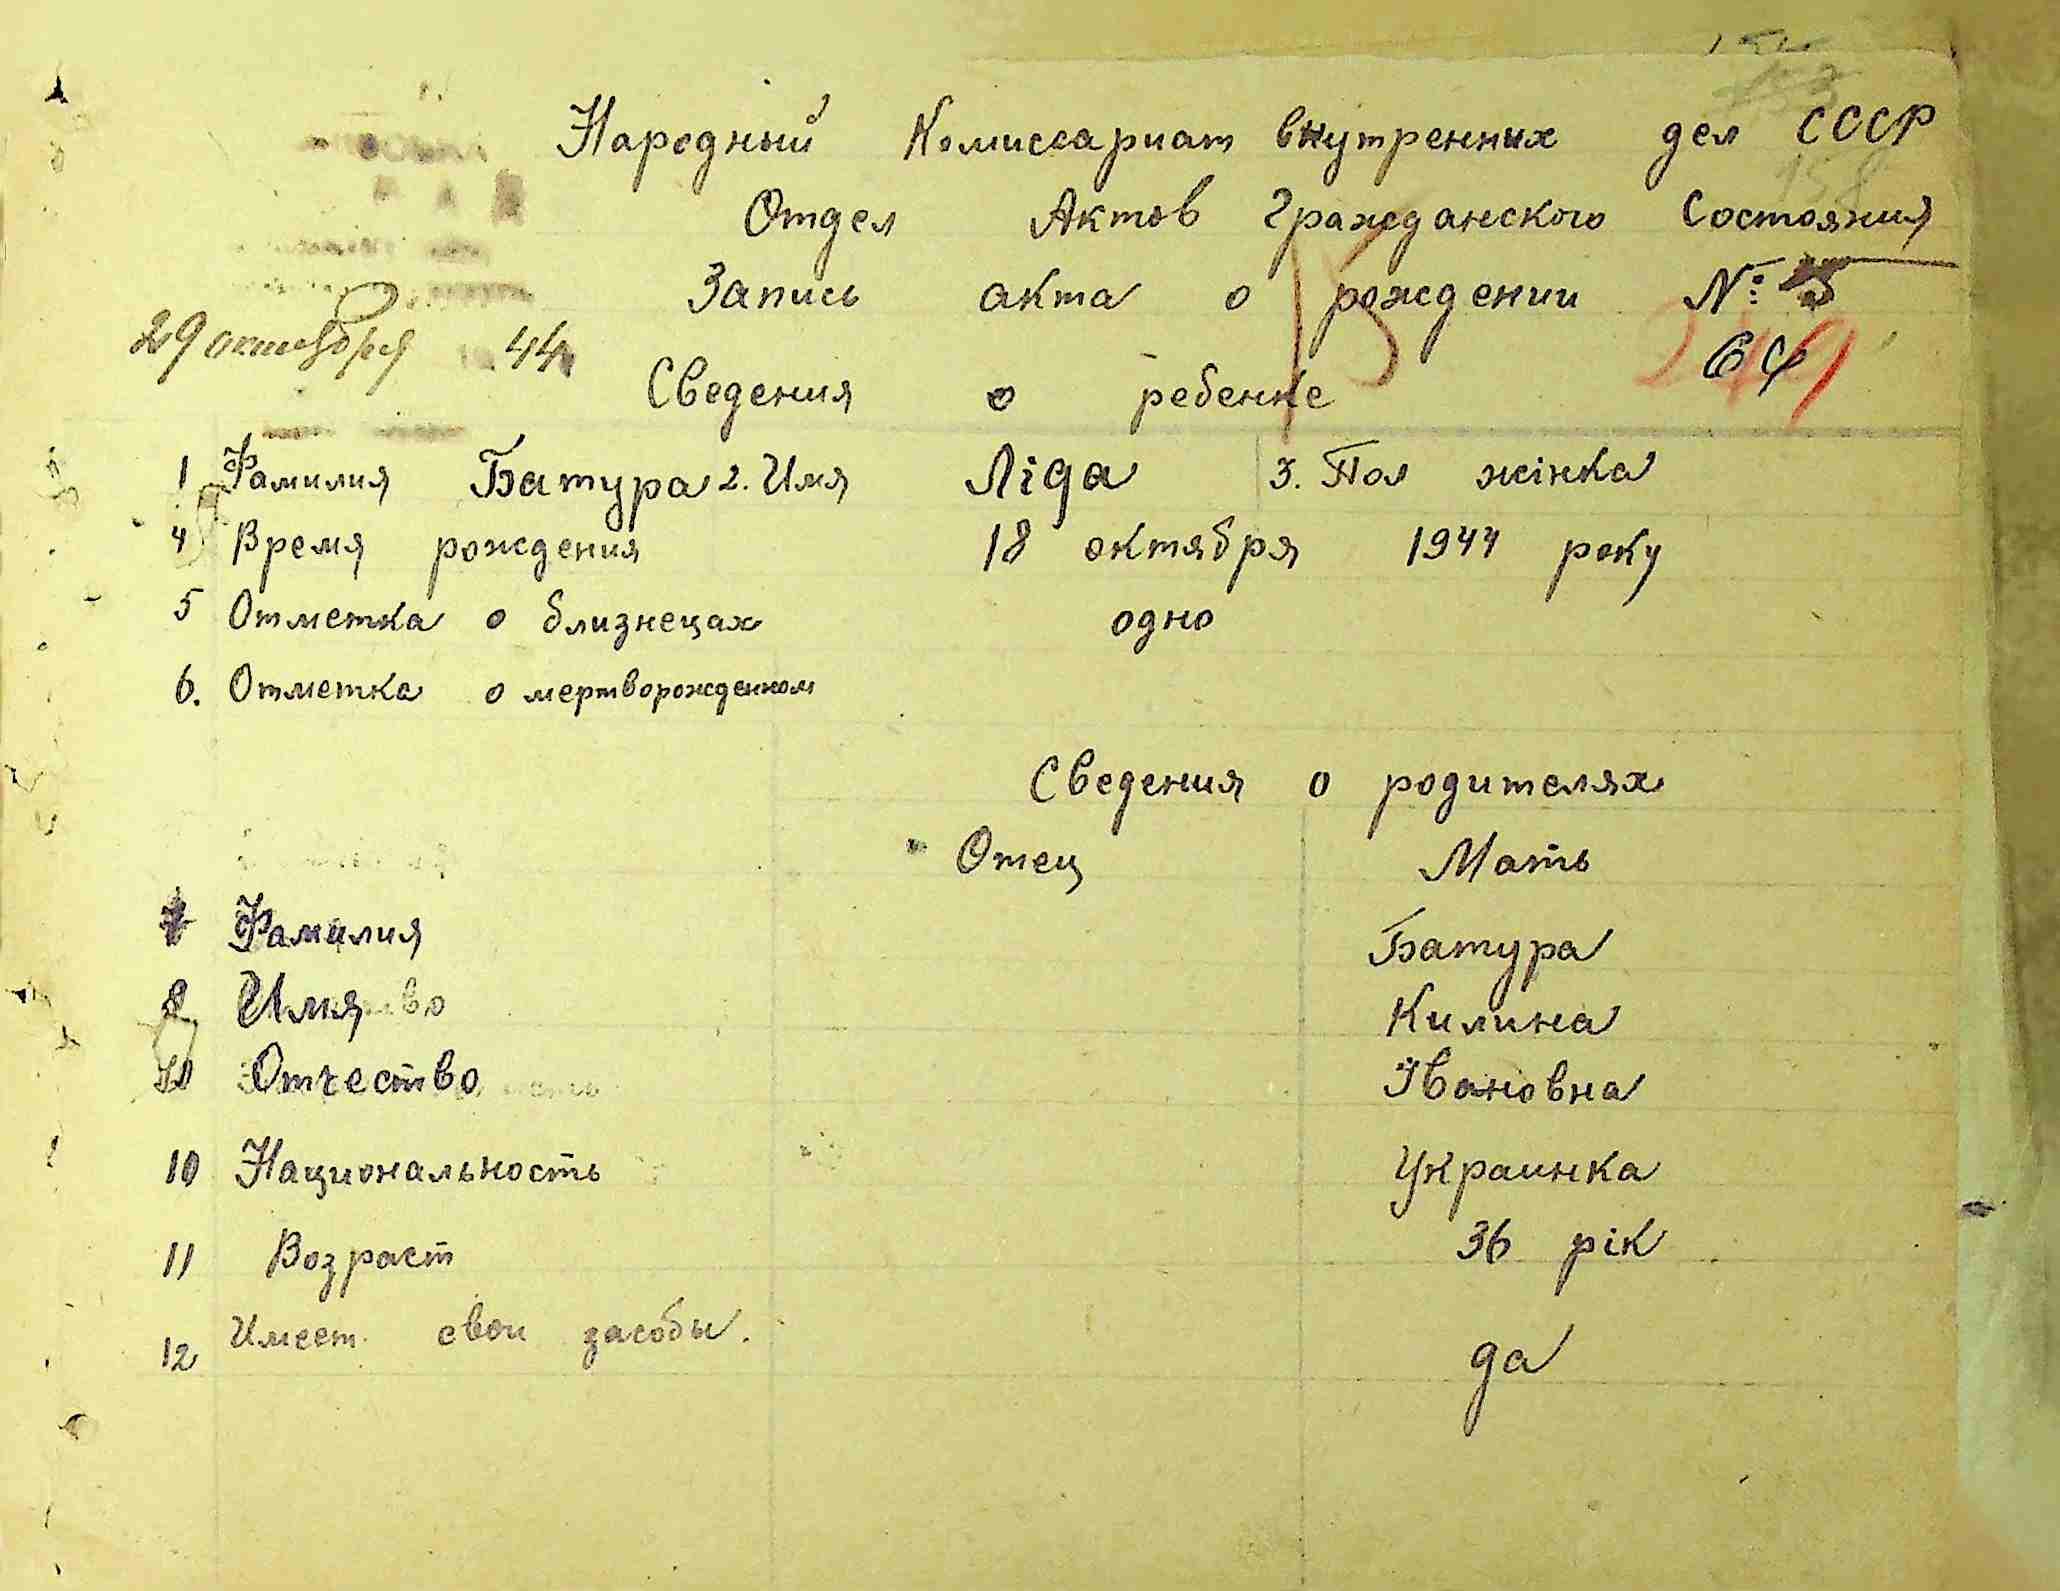 Народный Комиссариат внутренних дел СССР
158
Отдел Актов Гражданского Состояния
Запись акта о рождении №
29 октября 44
64
15
Сведения о ребенке
1 Фамилия Батура 2. Имя Ліда 3. Пол жінка
4 Время рождения 18 октября 1944 року
5 Отметка о близнецах одно
6. Отметка о мертворожденном
Сведения о родителях
Отец Мать
7 Фамилия Батура
8 Имя Килина
Отчество Івановна
10 Национальность Украинка
11 Возраст 36 рік
12 Имеет свои засобы. да